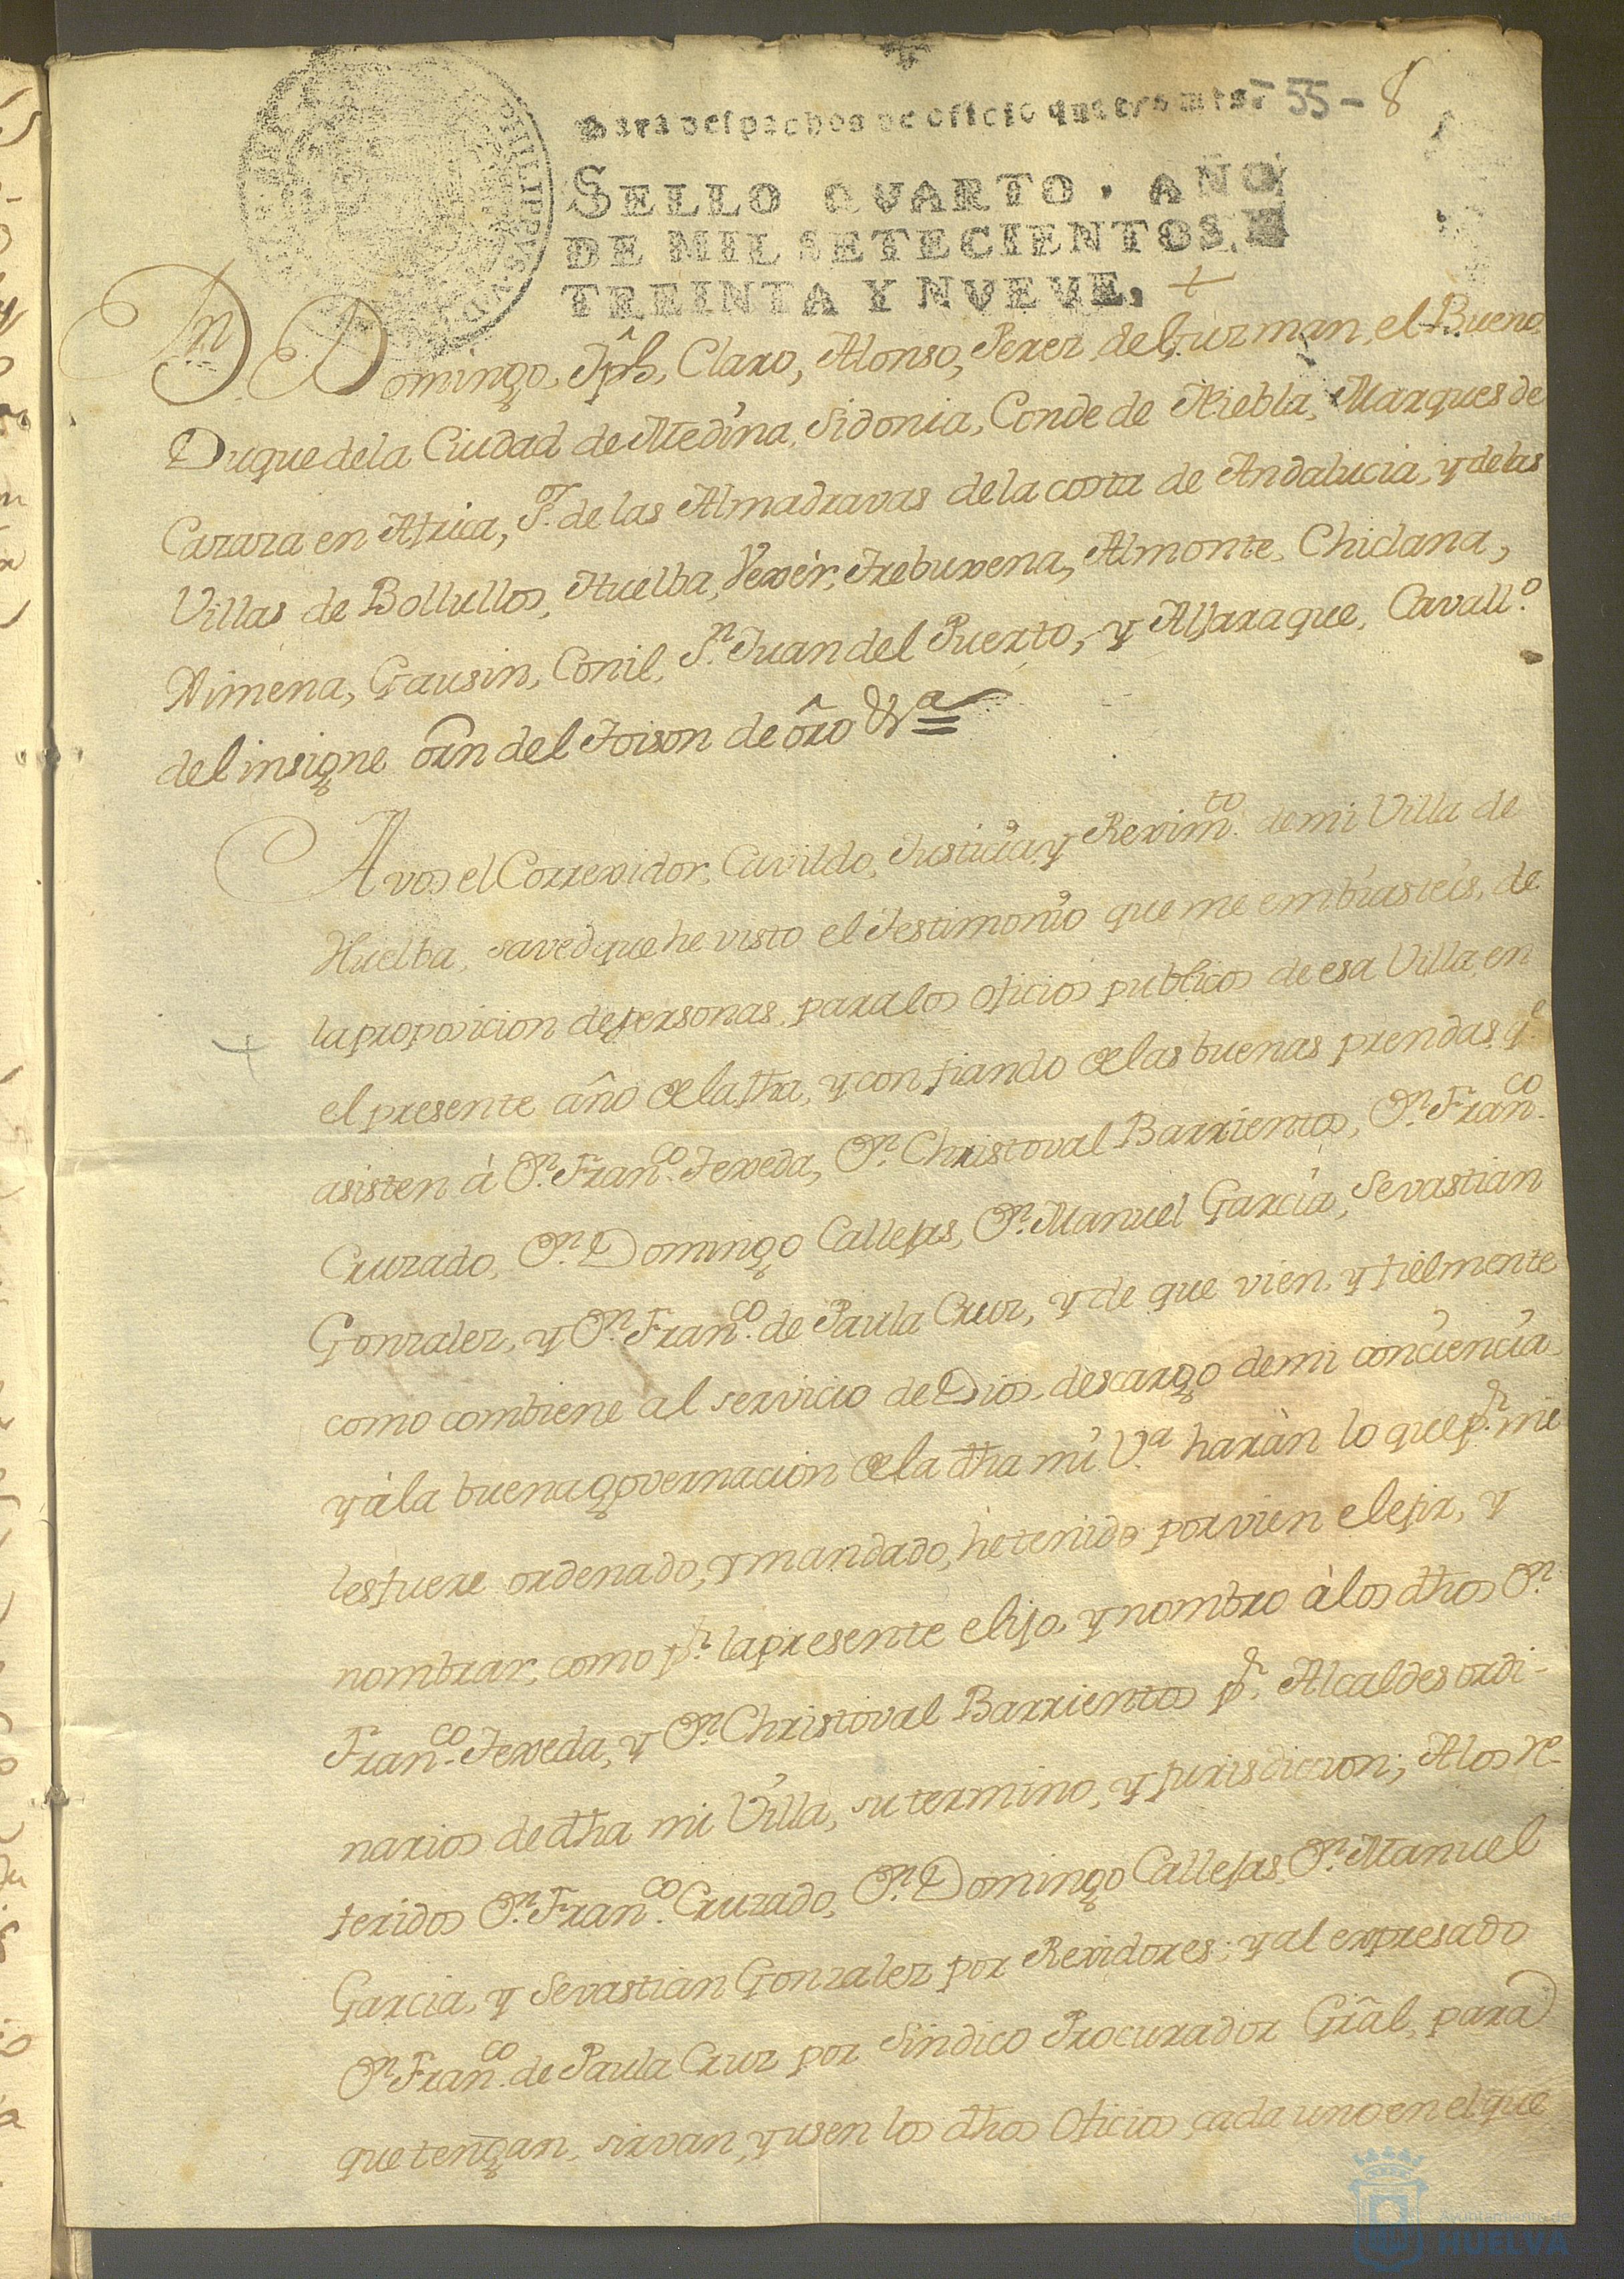 Para despachos de oficio quatro mrs. - 55 - 8
SELLO QVARTO. AÑO
DE MIL SETECIENTOS, Y
TREINTA Y NVEVE.
Dn. Domingo, Jph, Claro, Alonso, Perez de Guzman, el Bueno,
Duque dela Ciudad de Medina Sidonia, Conde de Niebla, Marques de
Cazaza en Africa, Sr. de las Almadravas dela costa de Andalucia, y delas
Villas de Bollullos, Huelba, Vexèr, Trebuxena, Almonte, Chiclana,
Ximena, Gausin, Conil, Sn. Juan del Puerto, y Aljaraque, Cavallo.
del insigne orn del Toison de oro &a
A vos el Correxidor, Cavildo, Justicia, y Reximto. demi Villa de
Huelba, saved que he visto el Testimonio que me embiasteis, de
la proposicion depersonas, paralos oficios publicos de esa Villa, en
el presente año dela fha, y confiando delas buenas prendas, qe.
asisten à Dn. Franco. Texeda, Dn. Christoval Barrientos, Dn. Franco.
Cruzado, Dn. Domingo Callejas, Dn. Manuel Garcia, Sevastian
Gonzalez, y Dn. Franco. de Paula Cruz, y de que vien, y fielmente
como combiene al servicio de Dios, descargo demi conciencia
y àla buena governacion dela dha mi Va. haràn lo que pr. mi
lesfuere ordenado, y mandado, hetenido porvien elejir, y
nombrar, como pr. lapresente elijo, y nombro àlos dhos Dn.
Franco. Texeda, y Dn. Christoval Barrientos pr. Alcaldes ordi-
narios de dha mi Villa, su termino, y jurisdiccion; Alos re-
feridos Dn. Franco. Cruzado, Dn. Domingo Callejas, Dn. Manuel
Garcia, y Sevastian Gonzalez por Rexidores; y al expresado
Dn. Franco. de Paula Cruz por Sindico Procurador Gral, para
que tengan, sirvan, y usen los dhos Oficios cada uno en el que
Ayuntamiento de
HUELVA